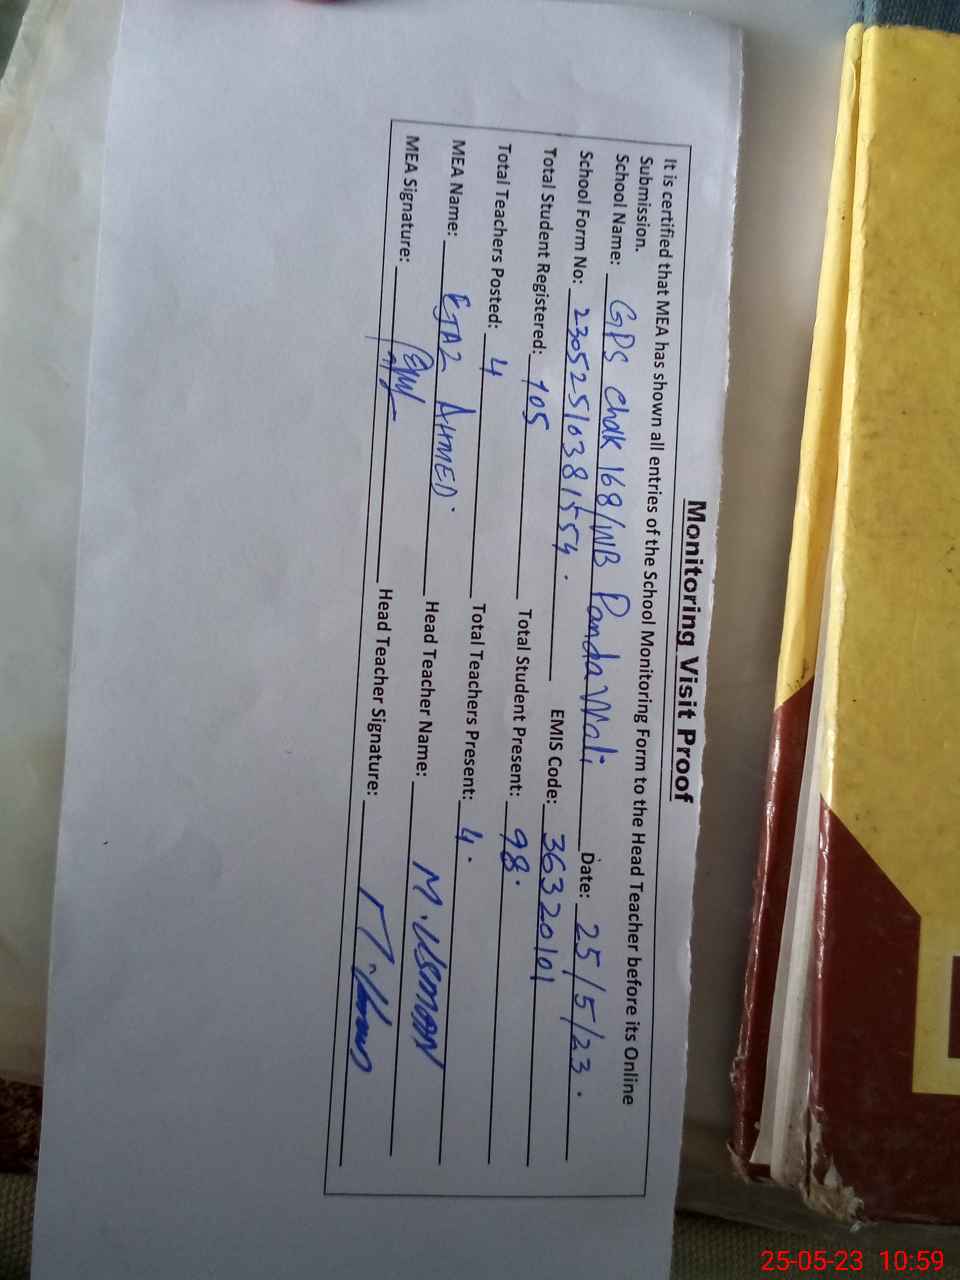 Monitoring Visit Proof
It is certified that MEA has shown all entries of the School Monitoring Form to the Head Teacher before its Online
Submission.
School Name: GPS Chak 168/WB Panda Wali Date: 25/5/23.
School Form No: 23052510381554. EMIS Code: 36320101
Total Student Registered: 105 Total Student Present: 98.
Total Teachers Posted: 4 Total Teachers Present: 4.
MEA Name: EJAZ AHMED. Head Teacher Name: M. USMAN
MEA Signature: Head Teacher Signature:
25-05-23 10:59